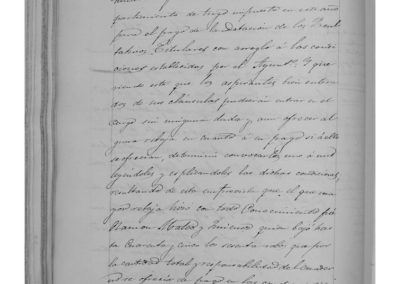 partimiento de trigo impuesto en este año
para el pago de la dotacion de los Facul
tativos Titulares con arreglo á las condi
ciones establecidas por el Ayunt.º Y que
riendo este que los aspirantes bien entera
dos de sus cláusulas pudieran entrar en el
cargo sin ninguna duda y aun ofrecer al
guna rebaja en cuanto á su pago si á ello
se ofrecian, determinó convocarlos uno á uno
leyendoles y esplicandoles las dichas condiciones,
resultando de esta conferencia que el que ma
yor rebaja hizo con todo conocimiento fué
Ramon Mateo y quien bajó has
ta cuarenta y cinco los reales que por
la cantidad total y responsabilidad del
se ofrecia de pago en las